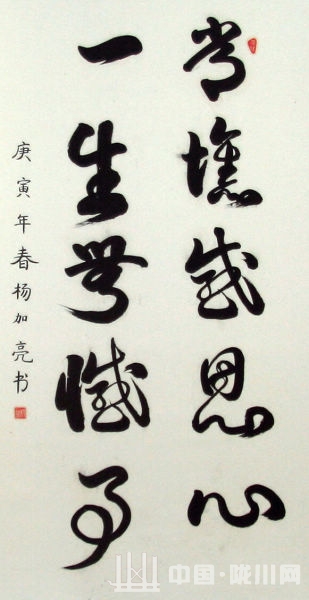 常懷感恩心
一生無憾事
庚寅年春杨加亮书
中国·陇川网